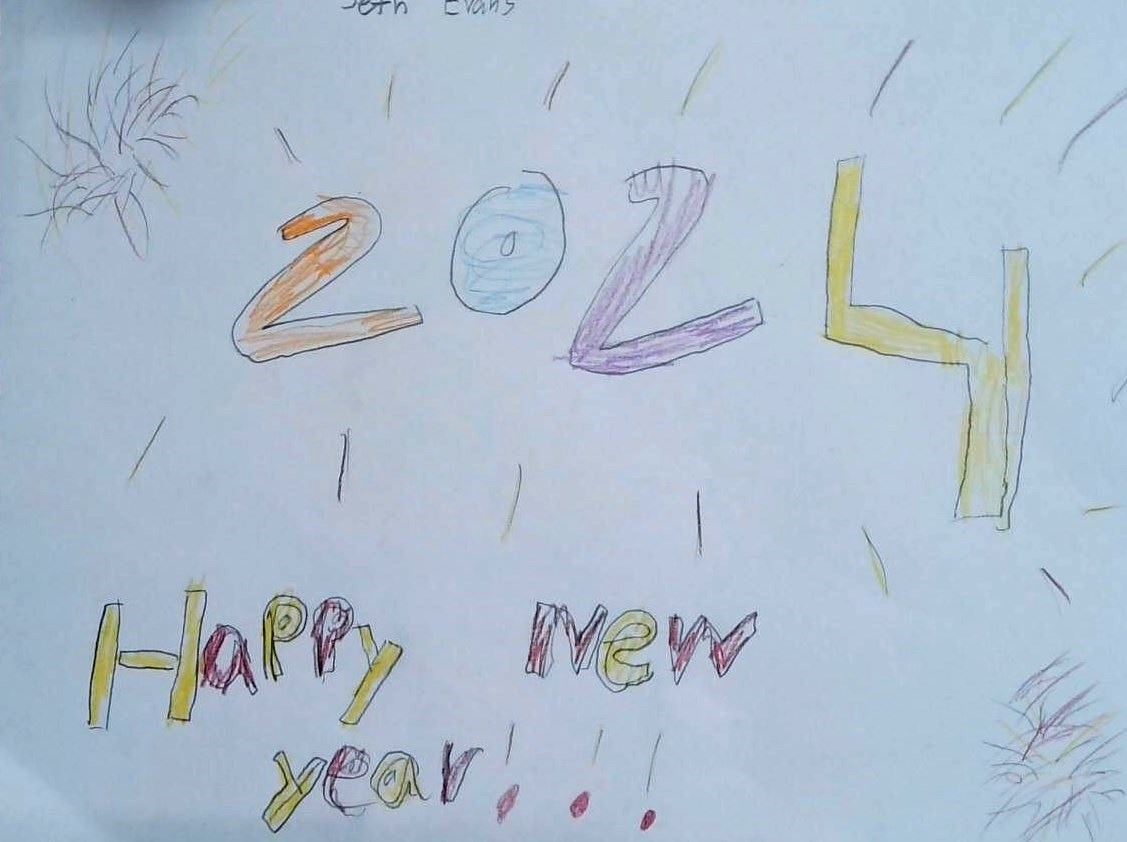 Seth Evans
2024
Happy new
year!!!